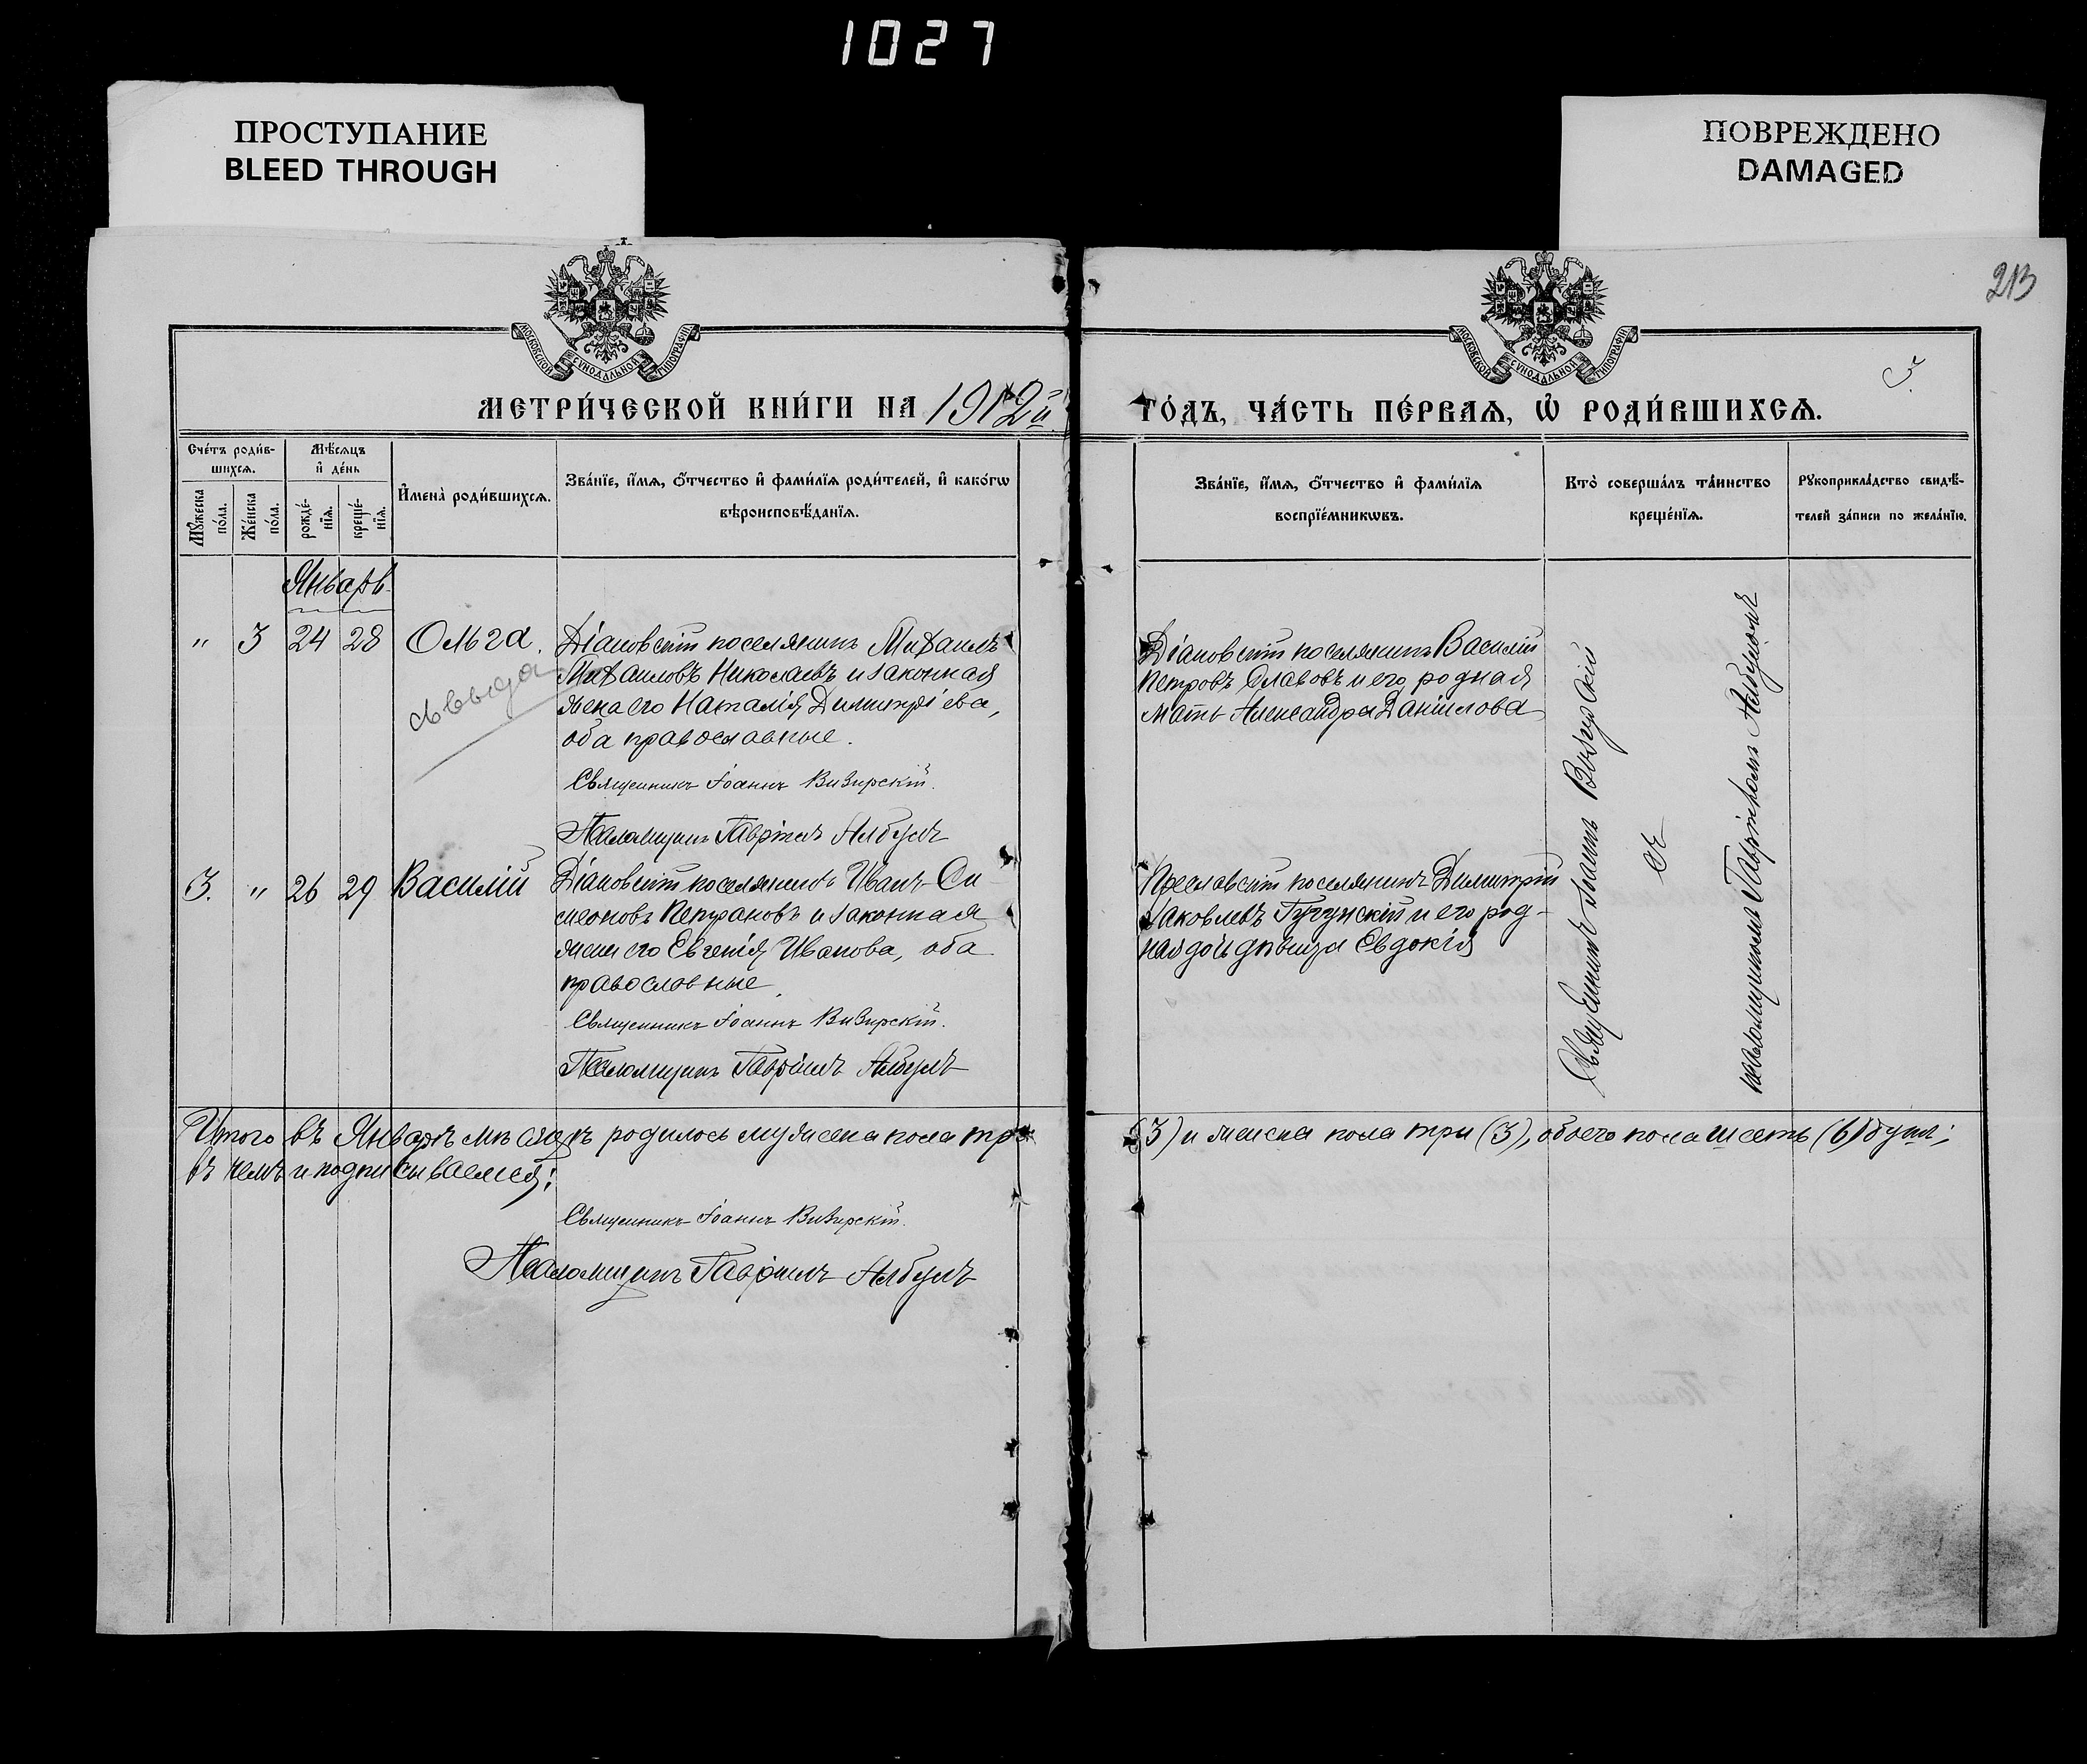 1027
ПРОСТУПАНИЕ
BLEED THROUGH
ПОВРЕЖДЕНО
DAMAGED
213
МОСКОВСКОЙ СѴНОДАЛЬНОЙ ТИПОГРАФІИ
МОСКОВСКОЙ СѴНОДАЛЬНОЙ ТИПОГРАФІИ
МЕТРИ́ЧЕСКОЙ КНИ́ГИ НА 1912й
ГО́ДЪ, ЧА́СТЬ ПЕ́РВАѦ, Ѡ҆ РОДИ́ВШИХСѦ.
Сче́тъ роди́в-
шихсѧ.
Мѣ́сѧцъ
и҆ де́нь
Мꙋ́жеска
по́ла.
Же́нска
по́ла.
рожде́-
нїѧ.
креще́-
нїѧ.
И҆мена̀ роди́вшихсѧ.
Зва́нїе, и҆́мѧ, ѻ҆́тчество и҆ фами́лїѧ роди́телей, и҆ како́гѡ
вѣроисповѣ́данїѧ.
Зва́нїе, и҆́мѧ, ѻ҆́тчество и҆ фами́лїѧ
воспрїе́мникѡвъ.
Кто̀ соверша́лъ та́инство
креще́нїѧ.
Рꙋкоприкла́дство свидѣ́-
телей за́писи по жела́нїю.
Январь
" 3 24 28 Ольга.
Діановскій поселянинъ Михаилъ
Михаиловъ Николаевъ и законная
жена его Наталія Димитріева,
оба православные.
Священникъ Іоаннъ Визирскій.
Псаломщикъ Гавріилъ Албулъ
Діановскій поселянинъ Василій
Петровъ Славовъ и его родная
мать Александра Даніилова
3. " 26 29 Василій
Діановскій поселянинъ Иванъ Си
меоновъ Петрановъ и законная
жена его Евгенія Иванова, оба
православные
Священникъ Іоаннъ Визирскій.
Псаломщикъ Гавріилъ Албулъ
Преславскій поселянинъ Димитрій
Іаковлевъ и его род-
ная дочь дѣвица Евдокія
Священникъ Іоаннъ Визирскій
съ
псаломщикомъ Гавріиломъ Албуломъ
Итого въ Январѣ мѣсяцѣ родилось мужеска пола три
(3) и женска пола три (3), обоего пола шесть (6) душъ;
въ чемъ и подписываемся:
Священникъ Іоаннъ Визирскій.
Псаломщикъ Гавріилъ Албулъ